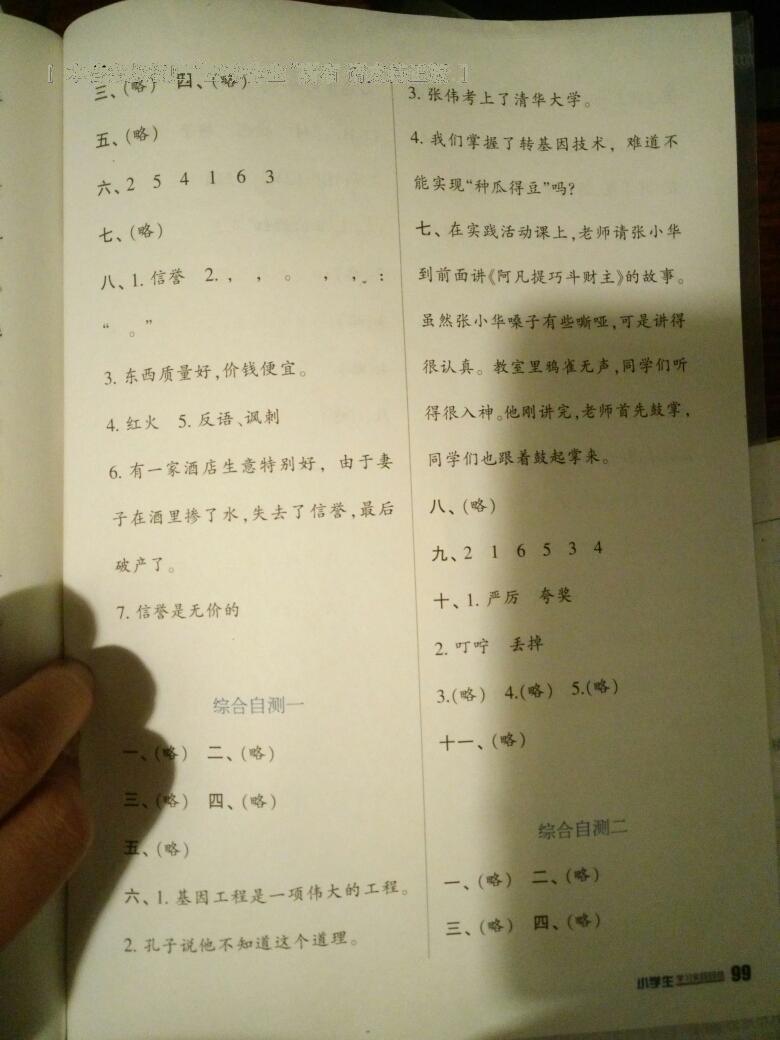 三、(略) 四、(略)
五、(略)
六、2 5 4 1 6 3
七、(略)
八、1. 信誉 2. , , 。 , , :
“ 。”
3. 东西质量好,价钱便宜。
4. 红火 5. 反语、讽刺
6. 有一家酒店生意特别好, 由于妻
子在酒里掺了水,失去了信誉,最后
破产了。
7. 信誉是无价的
综合自测一
一、(略) 二、(略)
三、(略) 四、(略)
五、(略)
六、1. 基因工程是一项伟大的工程。
2. 孔子说他不知道这个道理。
3. 张伟考上了清华大学。
4. 我们掌握了转基因技术, 难道不
能实现“种瓜得豆”吗?
七、在实践活动课上,老师请张小华
到前面讲《阿凡提巧斗财主》的故事。
虽然张小华嗓子有些嘶哑,可是讲得
很认真。教室里鸦雀无声,同学们听
得很入神。他刚讲完,老师首先鼓掌,
同学们也跟着鼓起掌来。
八、(略)
九、2 1 6 5 3 4
十、1. 严厉 夸奖
2. 叮咛 丢掉
3.(略) 4.(略) 5.(略)
十一、(略)
综合自测二
一、(略) 二、(略)
三、(略) 四、(略)
小学生 99